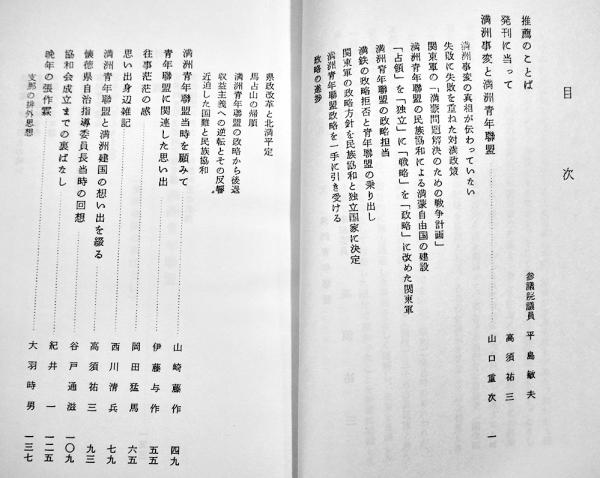 目次
推薦のことば 参議院議員 平島敏夫
発刊に当って 高須祐三
満洲事変と満洲青年聯盟 山口重次 一
満洲事変の真相が伝わっていない
失敗に失敗を重ねた対満政策
関東軍の「満蒙問題解決のための戦争計画」
満洲青年聯盟の民族協和による満蒙自由国の建設
「占領」を「独立」に「戦略」を「政略」に改めた関東軍
満洲青年聯盟の政略担当
満鉄の政略拒否と青年聯盟の乗り出し
関東軍の政略方針を民族協和と独立国家に決定
満洲青年聯盟政略を一手に引き受ける
政略の進捗
県政改革と北満平定
馬占山の帰順
満洲青年聯盟の政略から後退
収益主義への逆転とその反響
近迫した国難と民族協和
満洲青年聯盟当時を顧みて 山崎藤作 四九
青年聯盟に関連した思い出 伊藤与作 五五
往事茫茫の感 岡田猛馬 六五
思い出身辺雑記 西川清兵 七九
満洲青年聯盟と満洲建国の想い出を綴る 高須祐三 九三
懐徳県自治指導委員長当時の回想 谷戸通滋 一〇九
協和会成立までの裏ばなし 紀井一 一二五
晩年の張作霖 大羽時男 一三七
支那の排外思想